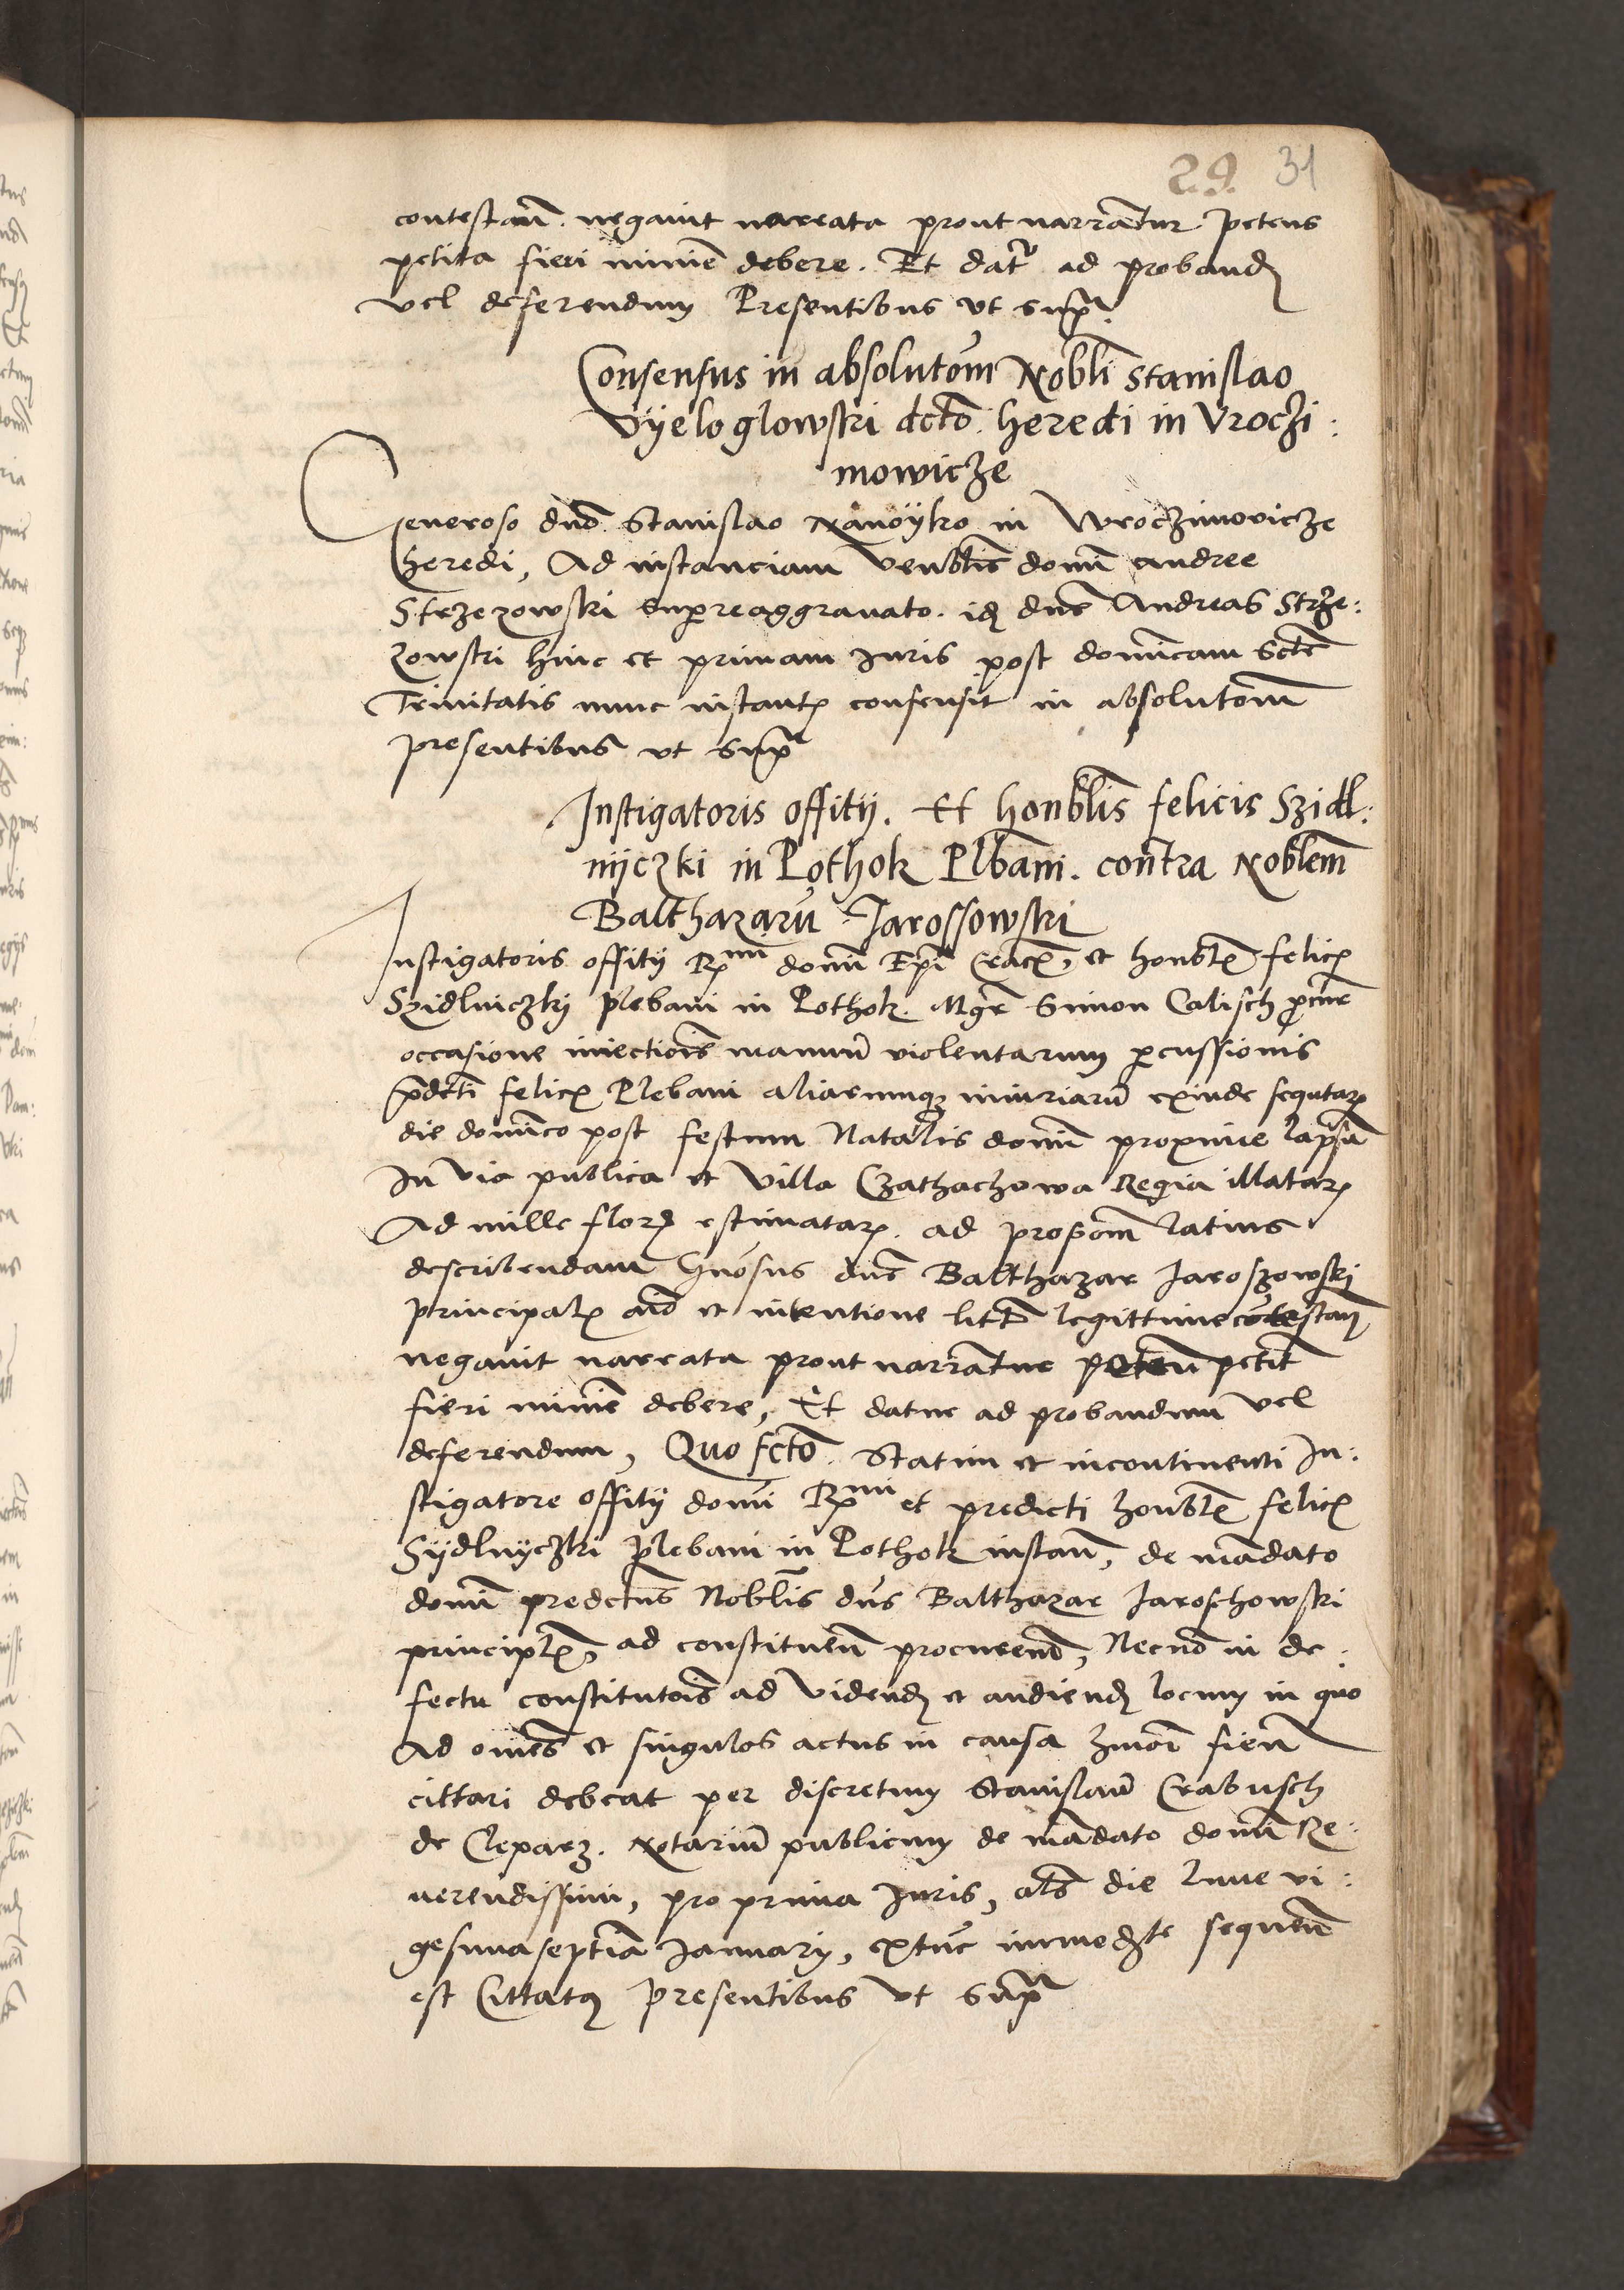 29. 31
contestañ. negauit narrata prout narrañtur petens
petita fieri minie debere. Et dat̃ ad proband
vel deferendum Presentibus vt supra.
Consensus in absolutom̄ Nobli Stanislao
Vyeloglowski dcto. heredi in Vroczi:
mowicze
Generoso dno Stanislao Nanoyko in Wroczimovicze
heredi, Ad instanciam Venblis domi Andree
Strzezowski supreaggrauato. id dns Andreas Strze:
zowski hinc et primam Iuris post dominicam Scte
Trinitatis nunc instante consensit in absolutom̄
presentibus vt supra
Instigatoris offitij. Et honblis felicis Szidl:
nyczki in Pothok Plbani. contra Noblem
Balthazarū Iarossowski
Instigatoris offitij Rmi domi Epi Crace, et honble felice
Szidlniczky plebani in Pothok. Mgr Simon Calisch pcur
occasione iniectiois manuū violentarum pcussionis
pdcti felice Plebani aliarumque iniuriarū exinde sequtar
die dominico post festum Natalis domi proxime lapsū
In via publica et Villa Czathachowa Regia illatar
Ad mille flor estimatar. ad proposom latius
describendam Gnosus dns Balthazar Iaroszowski
principal aio et intentione lite legittime cōtestañ
negauit narrata prout narrantur petit
fieri minie debere, Et datur ad probandum vel
deferendum, Quo fcto. Statim et incontinenti In:
stigatore offitij domi Rmi et predicti honble felice
Sydlnyczki plebani in Pothok instañ, de mādato
domi predctus Noblis dns Balthazar Iaroschowski
principl, ad constituen procurem, Necnō in de:
fectu constitutois ad Vidend et audiend locum in quo
Ad omēs et singulos actus in causa hmoi fien
cittari debeat per discretum Stanislaū Crabusch
de Cleparz. Notariū publicum de mādato domi Re:
uerendissimi, pro prima Iuris, als die lune vi:
gesimaseptia Ianuarij, extūc immedte sequen
est Cittatus presentibus vt supra